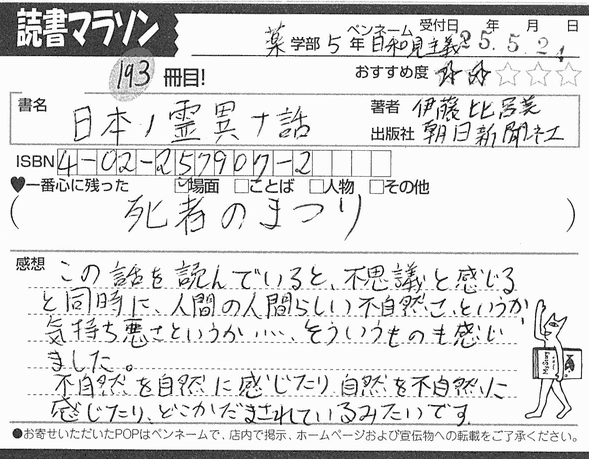 読書マラソン
193 冊目!
薬 学部 5 年 ペンネーム 日和見主義 受付日 25 年 5 月 21 日
おすすめ度 ★★☆☆☆
書名 日本ノ霊異ナ話
著者 伊藤比呂美
出版社 朝日新聞社
ISBN 4-02-257907-2
♥一番心に残った ☑場面 □ことば □人物 □その他
( 死者のまつり )
感想
この話を読んでいると、不思議と感じる
と同時に、人間の人間らしい不自然さ、というか、
気持ち悪さというか……、そういうものも感じ
ました。
不自然を自然に感じたり 自然を不自然に
感じたり、どこかだまされているみたいです。
●お寄せいただいたPOPはペンネームで、店内で掲示、ホームページおよび宣伝物への転載をご了承ください。